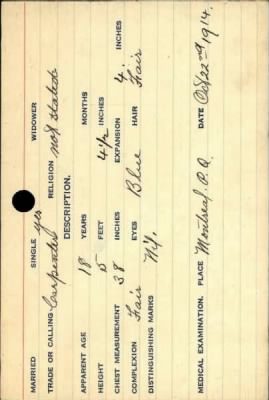 MARRIED SINGLE yes WIDOWER
TRADE OR CALLING Carpenter RELIGION not stated
DESCRIPTION.
APPARENT AGE 18 YEARS MONTHS
HEIGHT 5 FEET 4½ INCHES
CHEST MEASUREMENT 38 INCHES EXPANSION 4. INCHES
COMPLEXION Fair EYES Blue HAIR Fair
DISTINGUISHING MARKS Nil.
MEDICAL EXAMINATION. PLACE Montreal, P.Q. DATE Oct 22nd 1914.